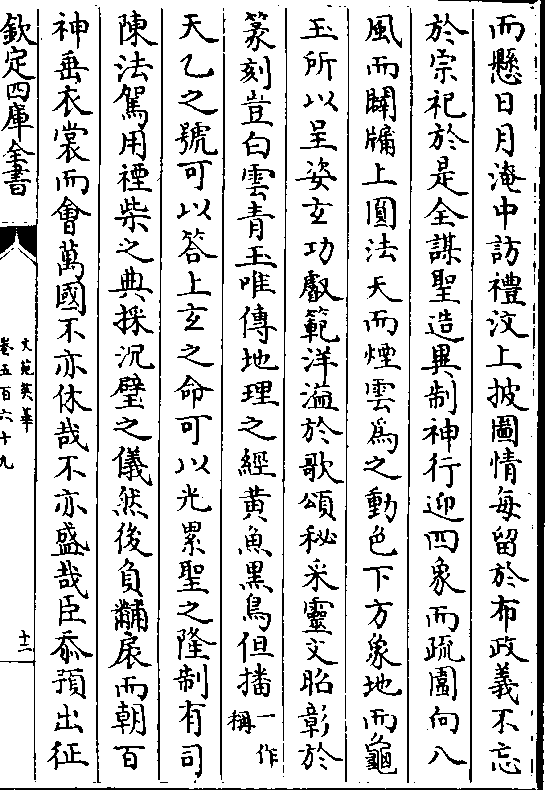 而懸日月淹中訪禮汶上披圖情每留於布政義不忘
於宗祀於是全謀聖造異制神行迎四象而疏園向八
風而闢牖上圓法天而煙雲為之動色下方象地而龜
玉所以呈姿玄功叡範洋溢於歌頌秘采靈文昭彰於
篆刻豈白雲青玉唯傳地理之經黃魚黑鳥但播一作稱
天乙之號可以答上玄之命可以光累聖之隆制有司
陳法駕用禋柴之典採沉璧之儀然後負黼扆而朝百
神垂衣裳而會萬國不亦休哉不亦盛哉臣忝預出征
欽定四庫全書
文苑英華
卷五百六十九
十二